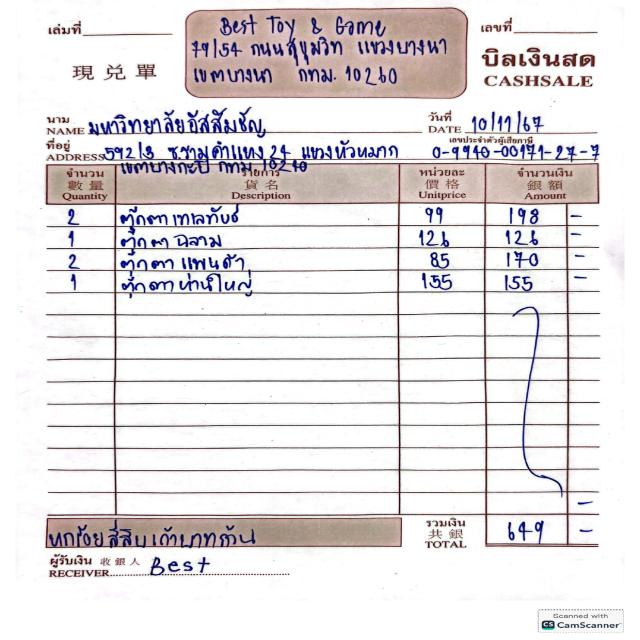 เล่มที่
Best Toy & Game
79/54 ถนนสุขุมวิท แขวงบางนา
เขตบางนา กทม. 10260
เลขที่
現兌單
บิลเงินสด
CASHSALE
นาม
NAME มหาวิทยาลัยอัสสัมชัญ
วันที่
DATE 10/11/67
ที่อยู่
ADDRESS 592/3 ซ.รามคำแหง 24 แขวงหัวหมาก
เขตบางกะปิ กทม 10240
เลขประจำตัวผู้เสียภาษี
0-9940-00171-27-7
จำนวน รายการ หน่วยละ จำนวนเงิน
數量 貨名 價格 銀額
Quantity Description Unitprice Amount
2 ตุ๊กตาเทเลทับบี้ 99 198 -
1 ตุ๊กตาฉลาม 126 126 -
2 ตุ๊กตาแพนด้า 85 170 -
1 ตุ๊กตา 155 155 -
-
หกร้อยสี่สิบเก้าบาทถ้วน
รวมเงิน
共銀
TOTAL 649 -
ผู้รับเงิน 收銀人
RECEIVER Best
Scanned with
CS CamScanner